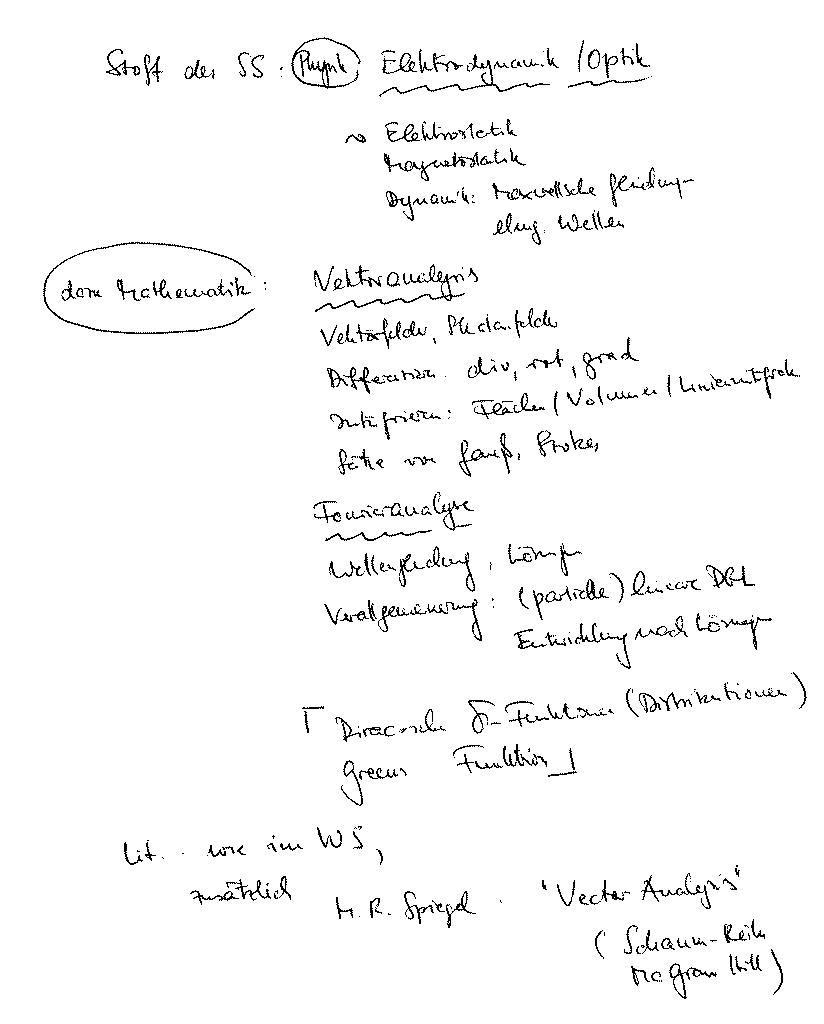 Stoff des SS: Physik Elektrodynamik / Optik
~> Elektrostatik
Magnetostatik
Dynamik: Maxwellsche Gleichung-
elmg. Wellen
dazu Mathematik: Vektoranalysis
Vektorfelder, Skalarfelder
Differentiation: div, rot, grad
Integrieren: Flächen / Volumen / Linienintegrale
Sätze von Gauß, Stokes
Fourieranalyse
Wellengleichung, Lösungen
Verallgemeinerung: (partielle) lineare DGL
Entwicklung nach Lösungen
⌈ Diracsche δ-Funktionen (Distributionen)
Greens Funktion ⌋
Lit.: wie im WS,
zusätzlich M. R. Spiegel: "Vector Analysis"
(Schaum-Reihe
McGraw Hill)